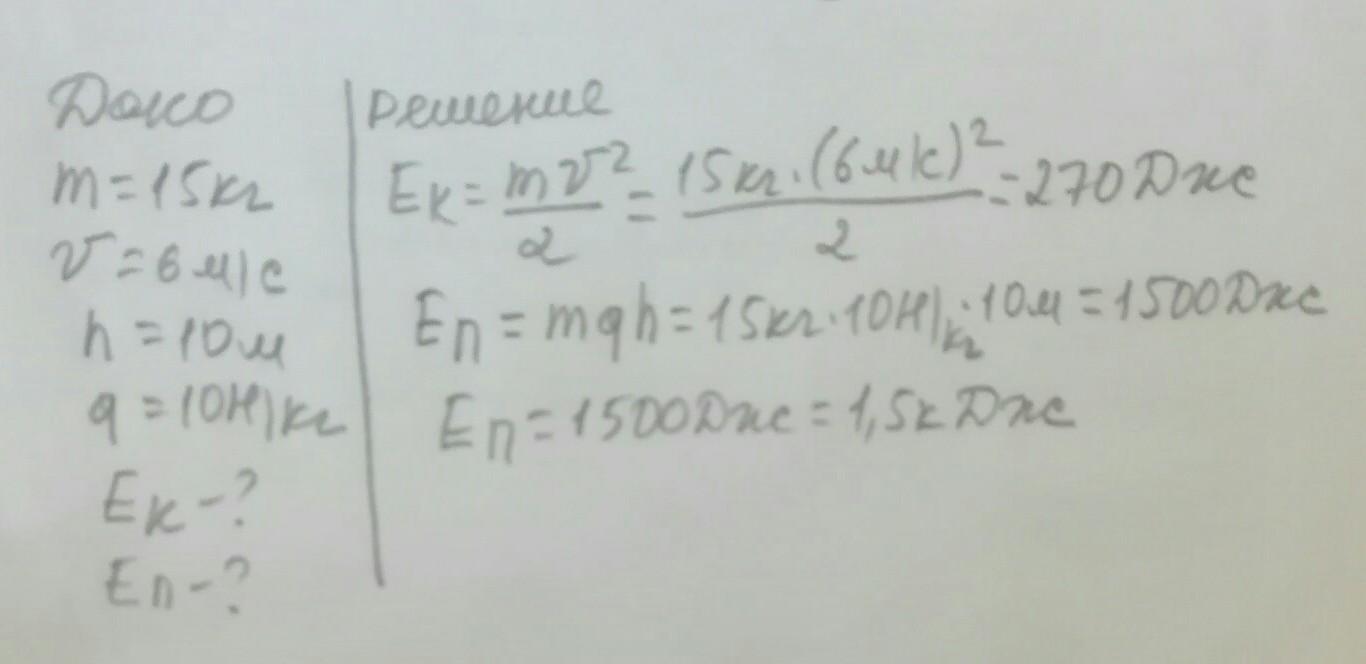 Дано
m = 15кг
v = 6 м/с
h = 10м
g = 10Н/кг
Eк - ?
Eп - ?
Решение
Eк = mv²/2 = 15кг·(6м/с)²/2 = 270Дж
Eп = mgh = 15кг·10Н/кг·10м = 1500Дж
Eп = 1500Дж = 1,5кДж